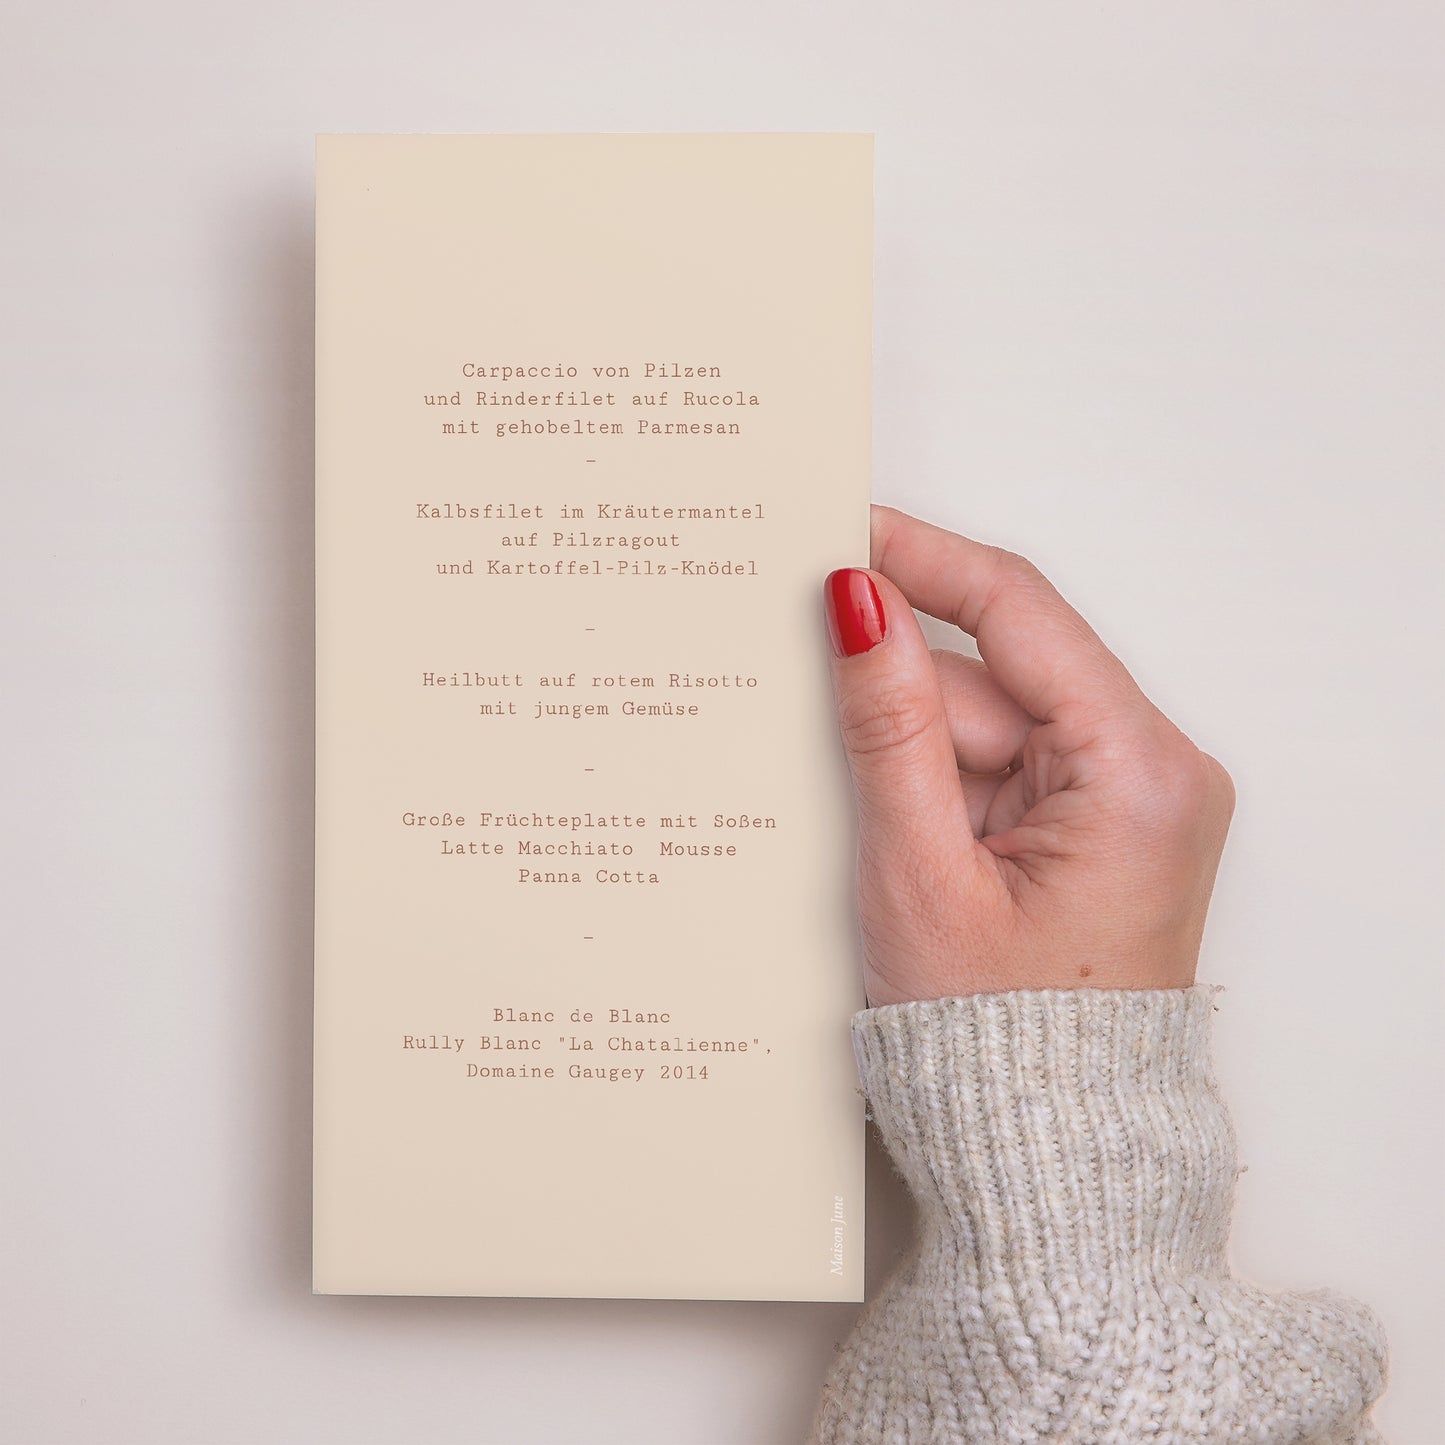 Carpaccio von Pilzen
und Rinderfilet auf Rucola
mit gehobeltem Parmesan
–
Kalbsfilet im Kräutermantel
auf Pilzragout
und Kartoffel-Pilz-Knödel
–
Heilbutt auf rotem Risotto
mit jungem Gemüse
–
Große Früchteplatte mit Soßen
Latte Macchiato Mousse
Panna Cotta
–
Blanc de Blanc
Rully Blanc "La Chatalienne",
Domaine Gaugey 2014
Maison June